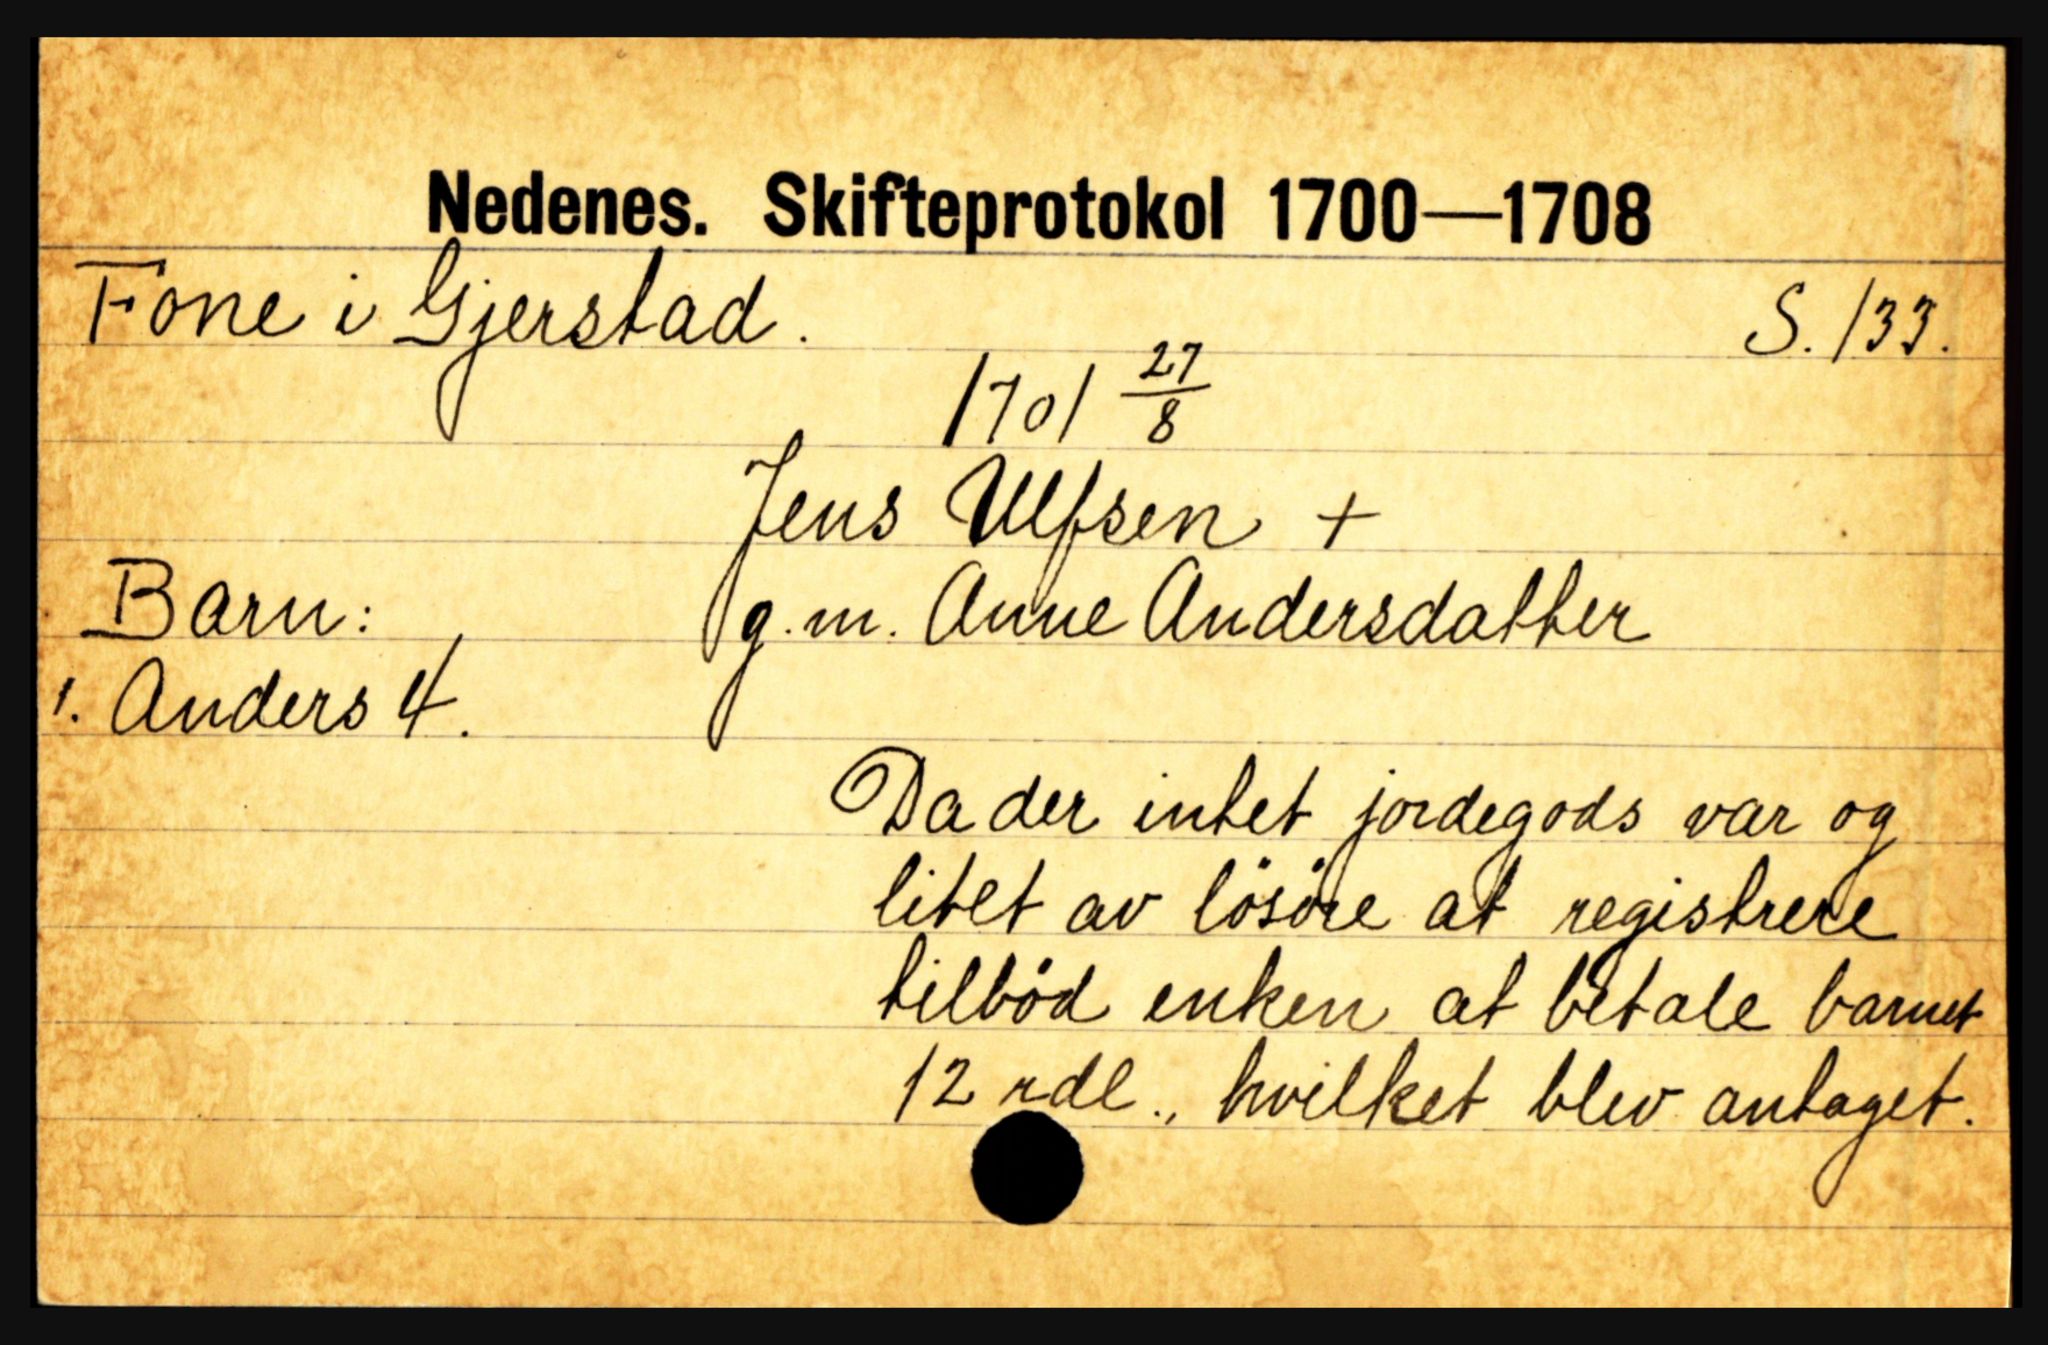 Nedenes. Skifteprotokol 1700—1708
Fone i Gjerstad. S. 133.
1701 27/8
Jens Ulfsen +
Barn: g.m. Anne Andersdatter
1. Anders 4.
Da der intet jordegods var og
litet av lösöre at registrere
tilböd enken at betale barnet
12 rdl., hvilket blev antaget.